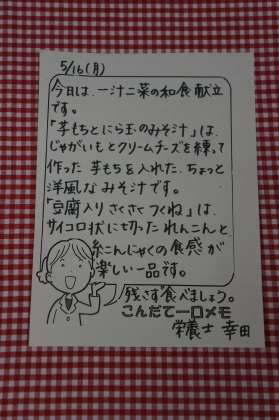 5/16(月)
今日は、一汁二菜の和食献立
です。
「芋もちとにら玉のみそ汁」は、
じゃがいもとクリームチーズを練って
作った芋もちを入れた、ちょっと
洋風なみそ汁です。
「豆腐入りさくさくつくね」は、
サイコロ状に切ったれんこんと
糸こんじゃくの食感が
楽しい一品です。
残さず食べましょう。
こんだて一口メモ
栄養士 幸田